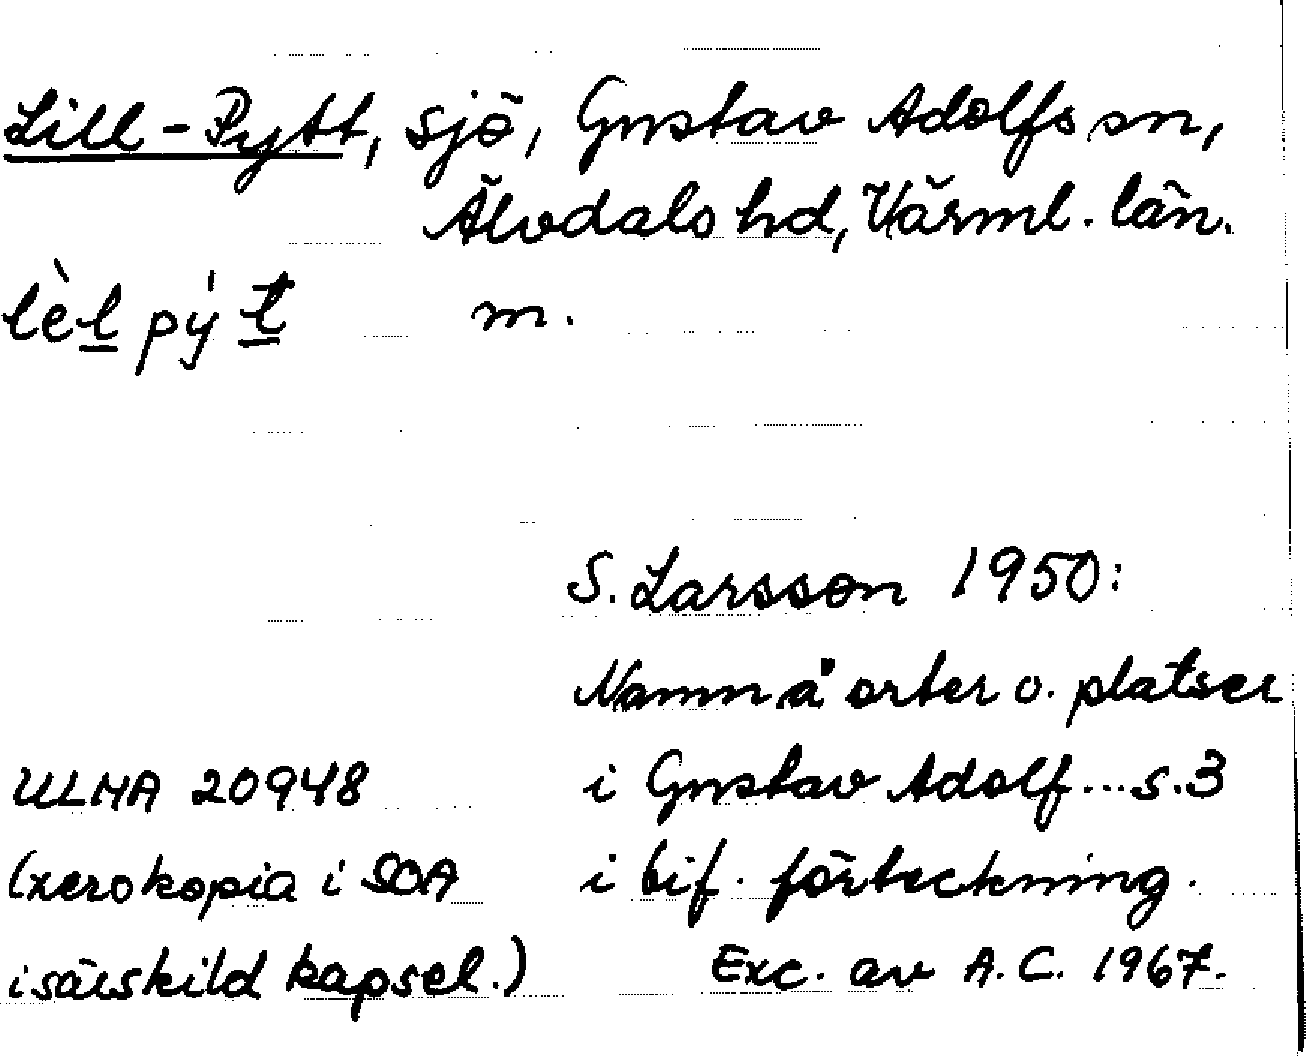 Lill-Pytt, sjö, Gustav Adolfs sn,
Älvdals hd, Värml. län.
lè̀l pý t m.
S. Larsson 1950:
Namn å orter o. platser
ULMA 20948 i Gustav Adolf...s.3
(xerokopia i SOA i bif. förteckning.
i särskild kapsel.) Exc. av A.C. 1967.